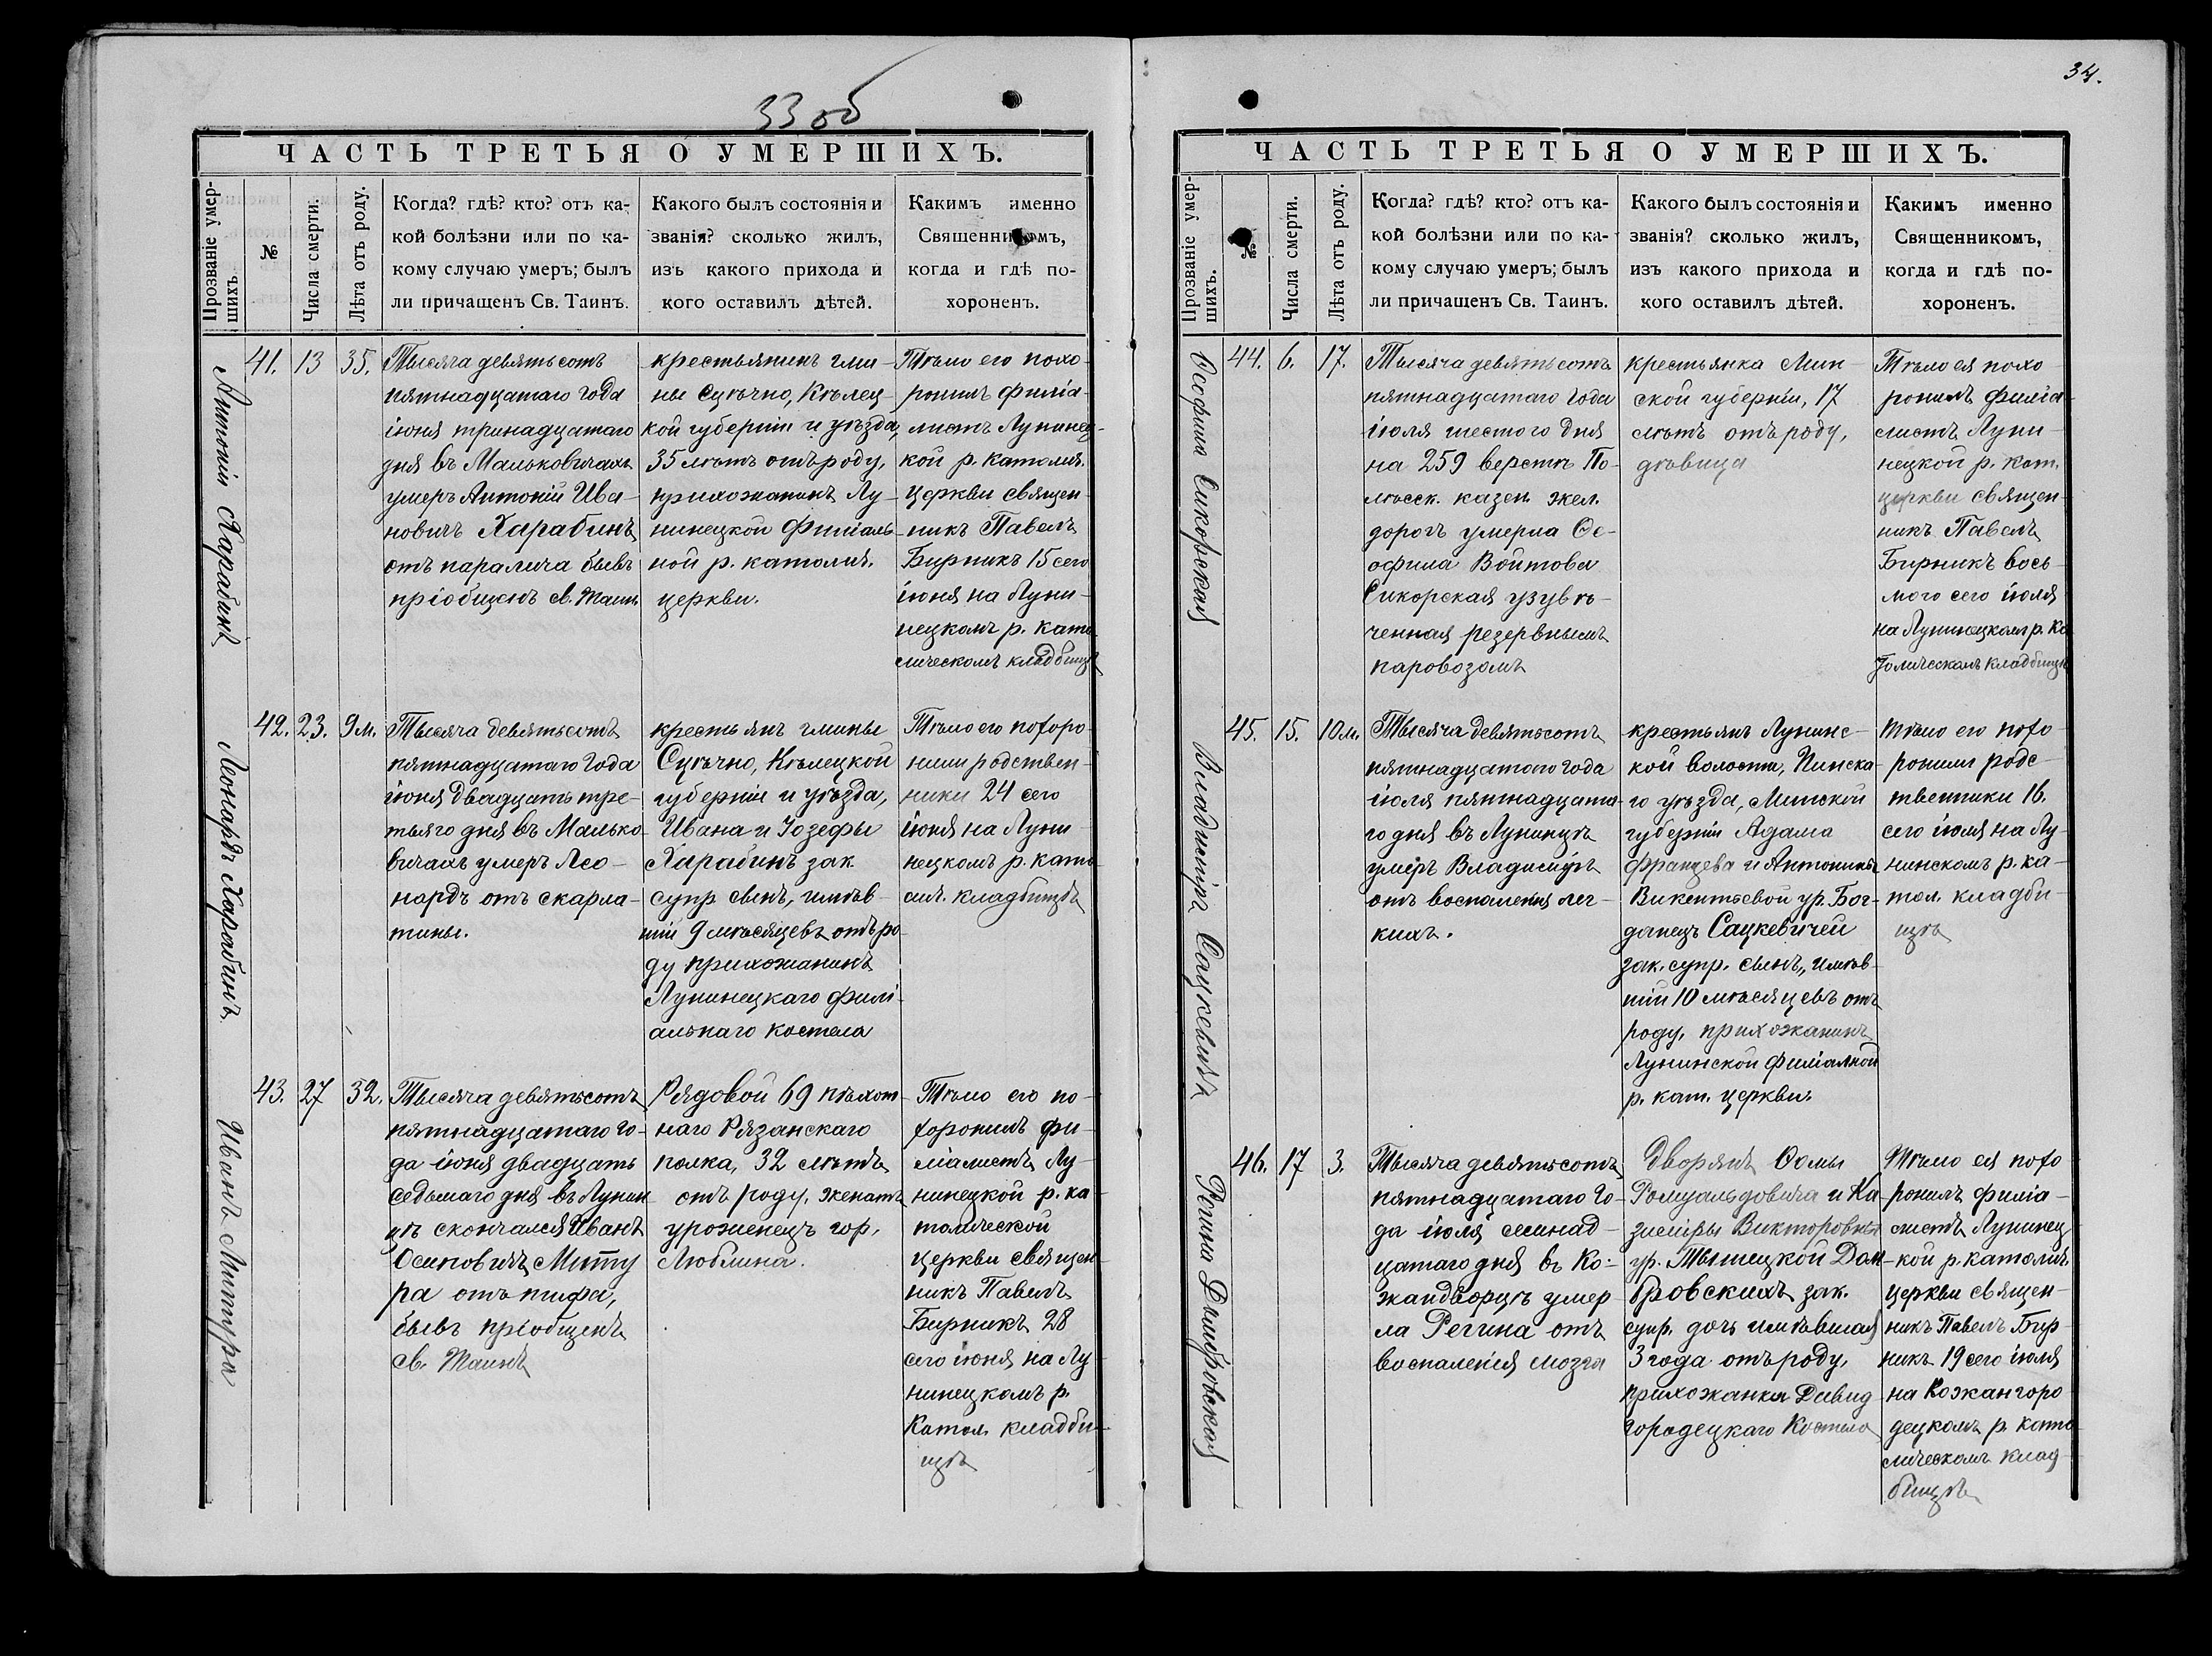 33 об
ЧАСТЬ ТРЕТЬЯ О УМЕРШИХЪ.
Прозваніе умер-
шихъ.
№
Числа смерти.
Лѣта отъ роду.
Когда? гдѣ? кто? отъ ка-
кой болѣзни или по ка-
кому случаю умеръ; былъ
ли причащенъ Св. Таинъ.
Какого былъ состоянія и
званія? сколько жилъ,
изъ какого прихода и
кого оставилъ дѣтей.
Какимъ именно
Священникомъ,
когда и гдѣ по-
хороненъ.
Антоній Харабинъ
41. 13 35.
Тысяча девятьсотъ
пятнадцатаго года
іюня тринадцатаго
дня въ Мальковичахъ
умеръ Антоній Ива-
новичъ Харабинъ
отъ паралича бывъ
пріобщенъ св. Таин.
крестьянинъ гми-
ны Суѣчно, Кѣлец-
кой губерніи и уѣзда,
35 лѣтъ отъ роду,
прихожанинъ Лу-
нинецкой Филіаль-
ной р. католич.
церкви.
Тѣло его похо-
ронилъ филіа-
листъ Лунинец-
кой р. католич.
церкви священ-
никъ Павелъ
Бирникъ 15 сего
іюня на Луни-
нецкомъ р. като-
лическомъ кладбищѣ
Леонардъ Харабинъ
42. 23. 9 м.
Тысяча девятьсотъ
пятнадцатаго года
іюня двадцать тре-
тьяго дня въ Малько-
вичахъ умеръ Лео-
нардъ отъ скарла-
тины.
крестьянъ гмины
Суѣчно, Кѣлецкой
губерніи и уѣзда,
Ивана и Іозефы
Харабинъ зак
супр сынъ, имѣв-
шій 9 мѣсяцевъ отъ ро
ду прихожанинъ
Лунинецкаго филі-
альнаго костела
Тѣло его похоро
нили родствен-
ники 24 сего
іюня на Луни-
нецкомъ р. като-
лич. кладбищѣ
Иванъ Митура
43. 27 32.
Тысяча девятьсотъ
пятнадцатаго го-
да іюня двадцать
седьмаго дня въ Лунин
цѣ скончался Иванъ
Осиповичъ Миту
ра отъ тифа,
бывъ пріобщенъ
св. Таинъ
Рядовой 69 пѣхот
наго Рязанскаго
полка, 32 лѣтъ
отъ роду, женатъ
уроженецъ гор.
Люблина.
Тѣло его по-
хоронилъ фи-
ліалистъ Лу-
нинецкой р. ка-
толической
церкви священ-
никъ Павелъ
Бирникъ 28
сего іюня на Лу
нинецкомъ р.
Катол. кладби-
щѣ
34.
ЧАСТЬ ТРЕТЬЯ О УМЕРШИХЪ.
Прозваніе умер-
шихъ.
№
Числа смерти.
Лѣта отъ роду.
Когда? гдѣ? кто? отъ ка-
кой болѣзни или по ка-
кому случаю умеръ; былъ
ли причащенъ Св. Таинъ.
Какого былъ состоянія и
званія? сколько жилъ,
изъ какого прихода и
кого оставилъ дѣтей.
Какимъ именно
Священникомъ,
когда и гдѣ по-
хороненъ.
Ѳеофила Сикорская
44. 6. 17.
Тысяча девятьсотъ
пятнадцатаго года
іюля шестого дня
на 259 верстѣ По-
лѣсск. казен. жел.
дорогъ умерла Ѳе-
офила Войтова
Сикорская узувѣ-
ченная резервнымъ
паровозомъ
крестьянка Мин-
ской губерніи, 17
лѣтъ отъ роду,
дѣвица
Тѣло ея похо
ронилъ филіа-
листъ Луни-
нецкой р. кат.
церкви священ-
никъ Павелъ
Бирникъ вось-
мого сего іюля
на Лунинецкомъ р. Ка
толическомъ кладбищѣ
Владиміръ Сацкевичъ
45. 15. 10 м.
Тысяча девятьсотъ
пятнадцатого года
іюля пятнадцата-
го дня въ Лунинцѣ
умеръ Владиміръ
отъ воспаленія лег-
кихъ.
крестьянъ Лунинс-
кой волости, Пинска-
го уѣзда, Минской
губерніи Адама
Францева и Антонины
Викентьевой ур. Бог-
данецъ Сацкевичей
зак. супр. сынъ, имѣв-
шій 10 мѣсяцевъ отъ
роду, прихожанинъ
Лунинской филіалной
р. кат. церкви.
Тѣло его похо-
ронили родс-
твенники 16.
сего іюля на Лу-
нинскомъ р. ка-
тол. кладби-
щѣ
Регина Домбровская
46. 17 3.
Тысяча девятьсотъ
пятнадцатаго го-
да іюля семнад-
цатаго дня въ Ко-
жандворцѣ умер
ла Регина отъ
воспаленія мозга
Дворянъ Ѳомы
Ромуальдовича и Ка-
зиміры Викторовны
ур. Тышецкой Дом-
бровскихъ зак.
супр. дочь имѣвшая
3 года отъ роду,
прихожанка Давид
городецкаго Костела
Тѣло ея похо
ронилъ филіа-
листъ Лунинец-
кой р. католич.
церкви священ-
никъ Павелъ Бир-
никъ 19 сего іюля
на Кожангоро-
децкомъ р. като
лическомъ клад-
бищѣ